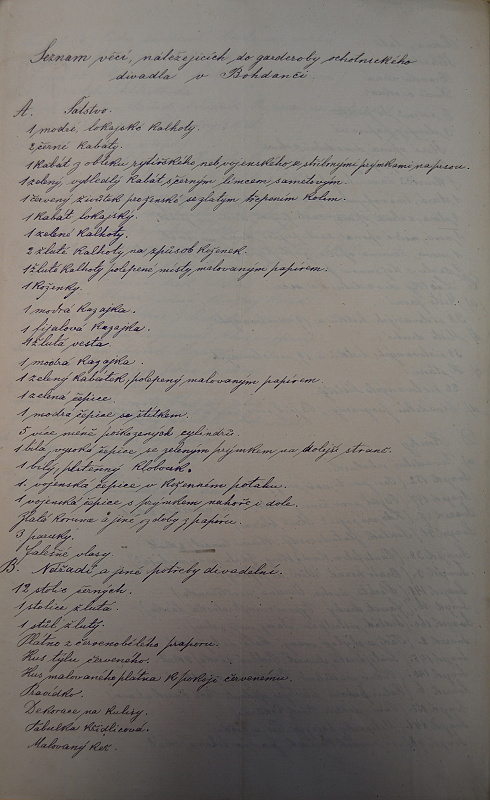 Seznam věcí, náležejících do garderoby ochotnického
divadla v Bohdanči.
A. Šatstvo.
1 modré, lokajské kalhoty.
2 černé kabáty.
1 kabát z obleku rytířského neb vojenského, se stříbrnými prýmkami na prsou.
1 zelený, vybledlý kabát s černým límcem sametovým.
1 červený živůtek pro ženské se zlatým třepením kolem.
1 kabát lokajský.
1 zelené kalhoty.
2 žluté kalhoty na způsob koženek.
1 žluté kalhoty polepené místy, malovaným papírem.
1 koženky.
1 modrá kazajka.
1 fijalová kazajka.
1 žlutá vesta.
1 modrá kazajka.
1 zelený kabátek, polepený malovaným papírem.
1 zelená čepice.
1 modrá čepice se štítkem.
5 více méně poškozených cylindrů.
1 bílá vysoká čepice se zeleným prýmkem na dolejší straně.
1 bílý, plstěnný klobouk.
1. vojenská čepice v koženném potahu.
1 vojenská čepice s prýmkem nahoře i dole.
Zlatá koruna a jiné ozdoby z papíru.
3 paruky.
Falešné vlasy.
B. Nářadí a jiné potřeby divadelní.
12 stolic černých.
1 stolice žlutá.
1 stůl žlutý.
Plátno z červenobílého praporu.
Kus týlu červeného.
Kus malovaného plátna k pokoji červenému.
Pravidko.
Dekorace na kulisy.
Tabulka břidlicová.
Malovaný keř.